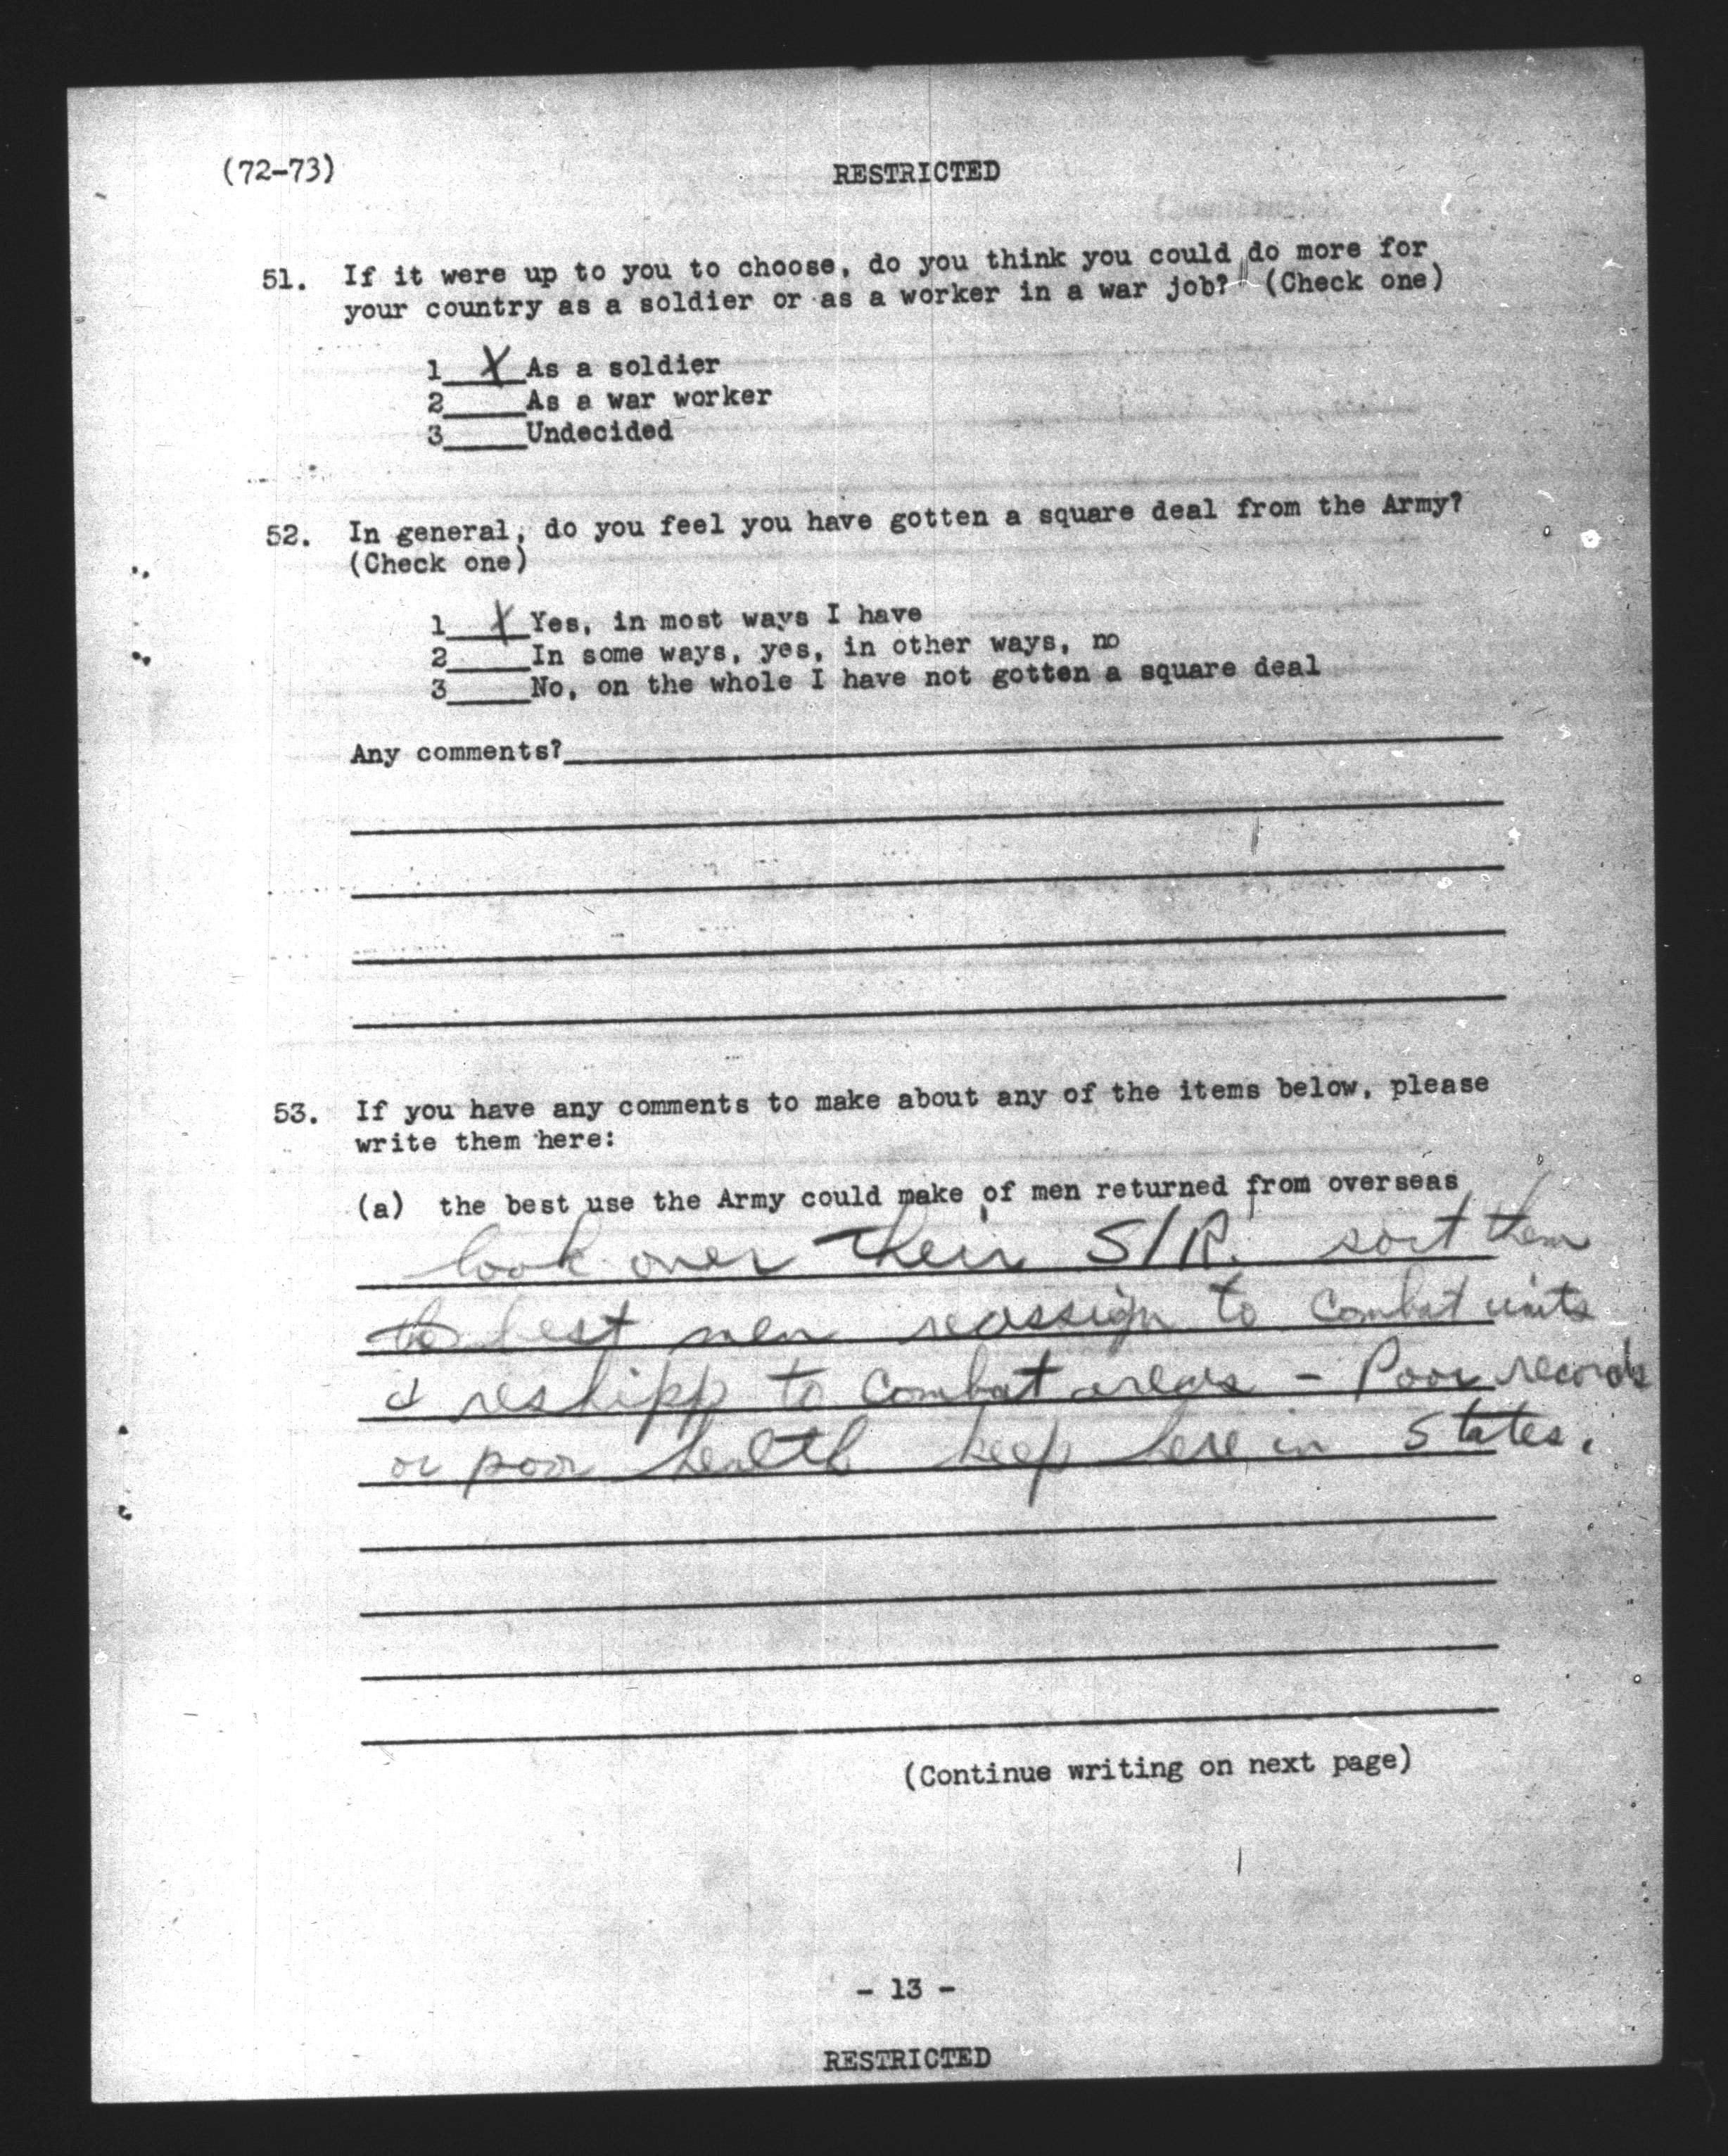 (72-73)
RESTRICTED
51. If it were up to you to choose, do you think you could do more for
your country as a soldier or as a worker in a war job? (Check one)
1 X As a soldier
2 As a war worker
3 Undecided
52. In general, do you feel you have gotten a square deal from the Army?
(Check one)
1 X Yes, in most ways I have
2 In some ways, yes, in other ways, no
3 No, on the whole I have not gotten a square deal
Any comments?
53. If you have any comments to make about any of the items below, please
write them here:
(a) the best use the Army could make of men returned from overseas
look over their S/R. sort them
the best men reassign to Combat units
& reshipp to Combat areas - Poor records
or poor health keep here in States.
(Continue writing on next page)
- 13 -
RESTRICTED